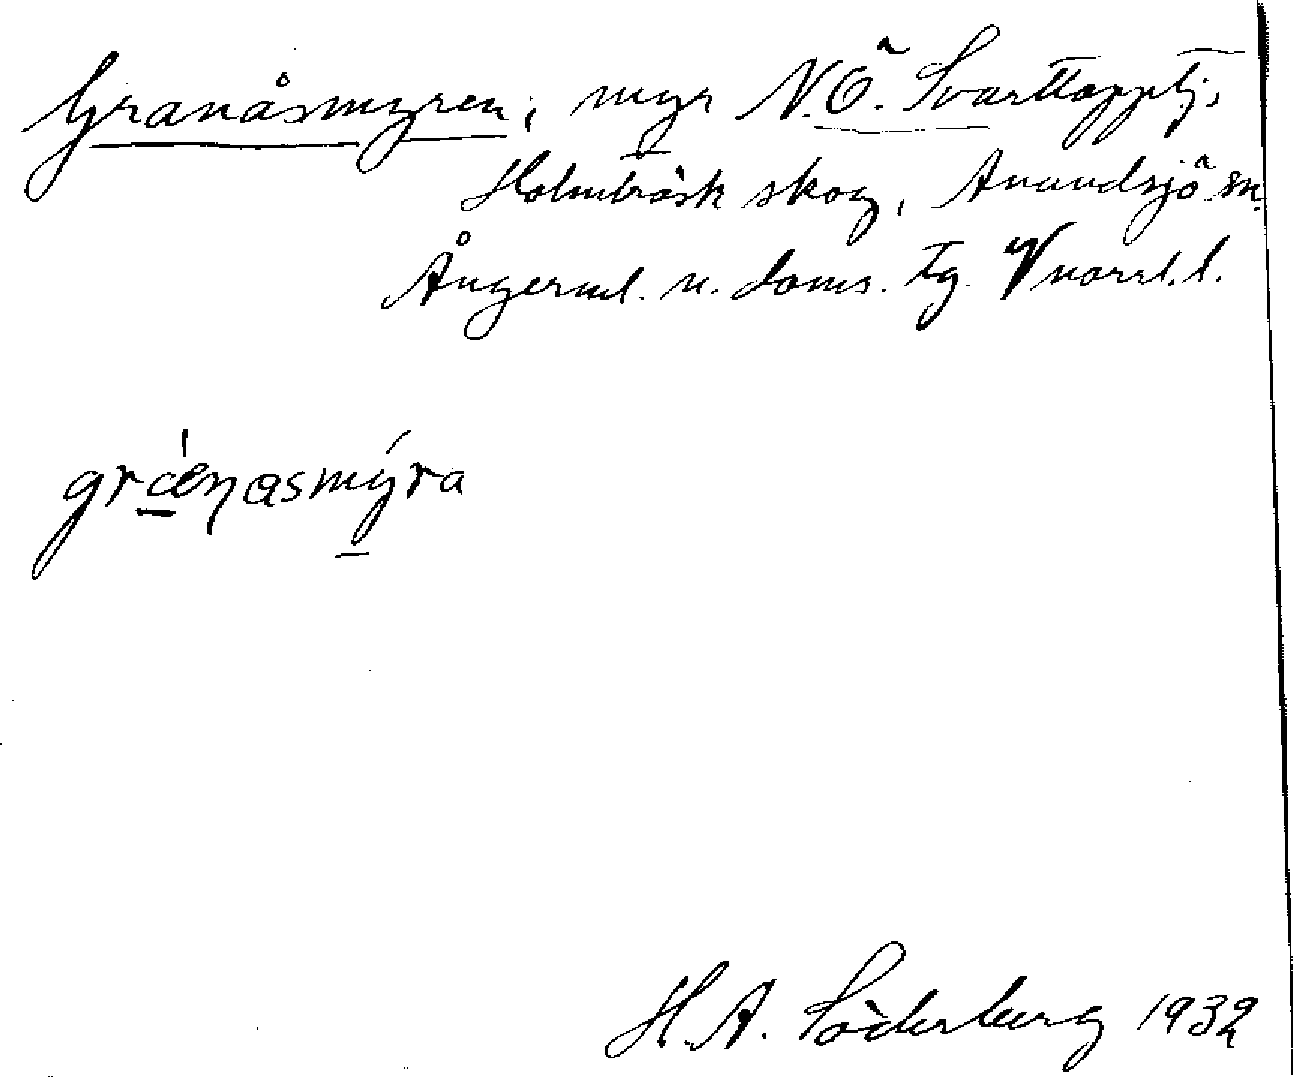 Granåsmyren, myr N.Ö. Svarttopptj.
Holmträsk skog, Anundsjö sn.
Ångerml. n. doms. tg. Vnorrl. l.
grǽnasmýra
H. A. Söderberg 1932